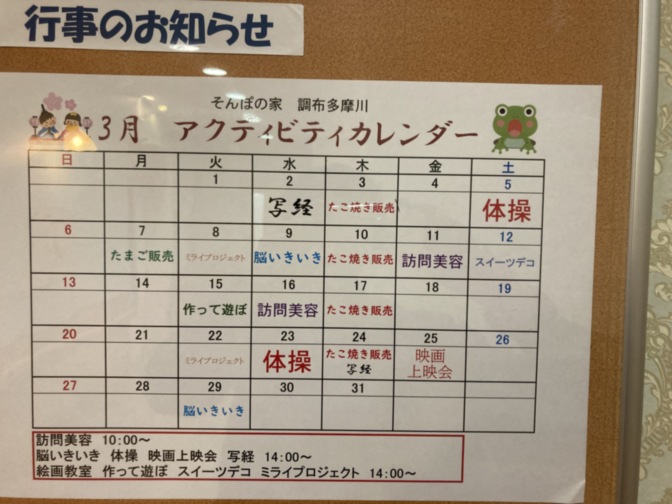 行事のお知らせ
そんぽの家 調布多摩川
3月 アクティビティカレンダー
日 月 火 水 木 金 土
1 2 3 4 5
写経 たこ焼き販売 体操
6 7 8 9 10 11 12
たまご販売 ミライプロジェクト 脳いきいき たこ焼き販売 訪問美容 スイーツデコ
13 14 15 16 17 18 19
作って遊ぼ 訪問美容 たこ焼き販売
20 21 22 23 24 25 26
ミライプロジェクト 体操 たこ焼き販売 映画
写経 上映会
27 28 29 30 31
脳いきいき
訪問美容 10:00～
脳いきいき 体操 映画上映会 写経 14:00～
絵画教室 作って遊ぼ スイーツデコ ミライプロジェクト 14:00～